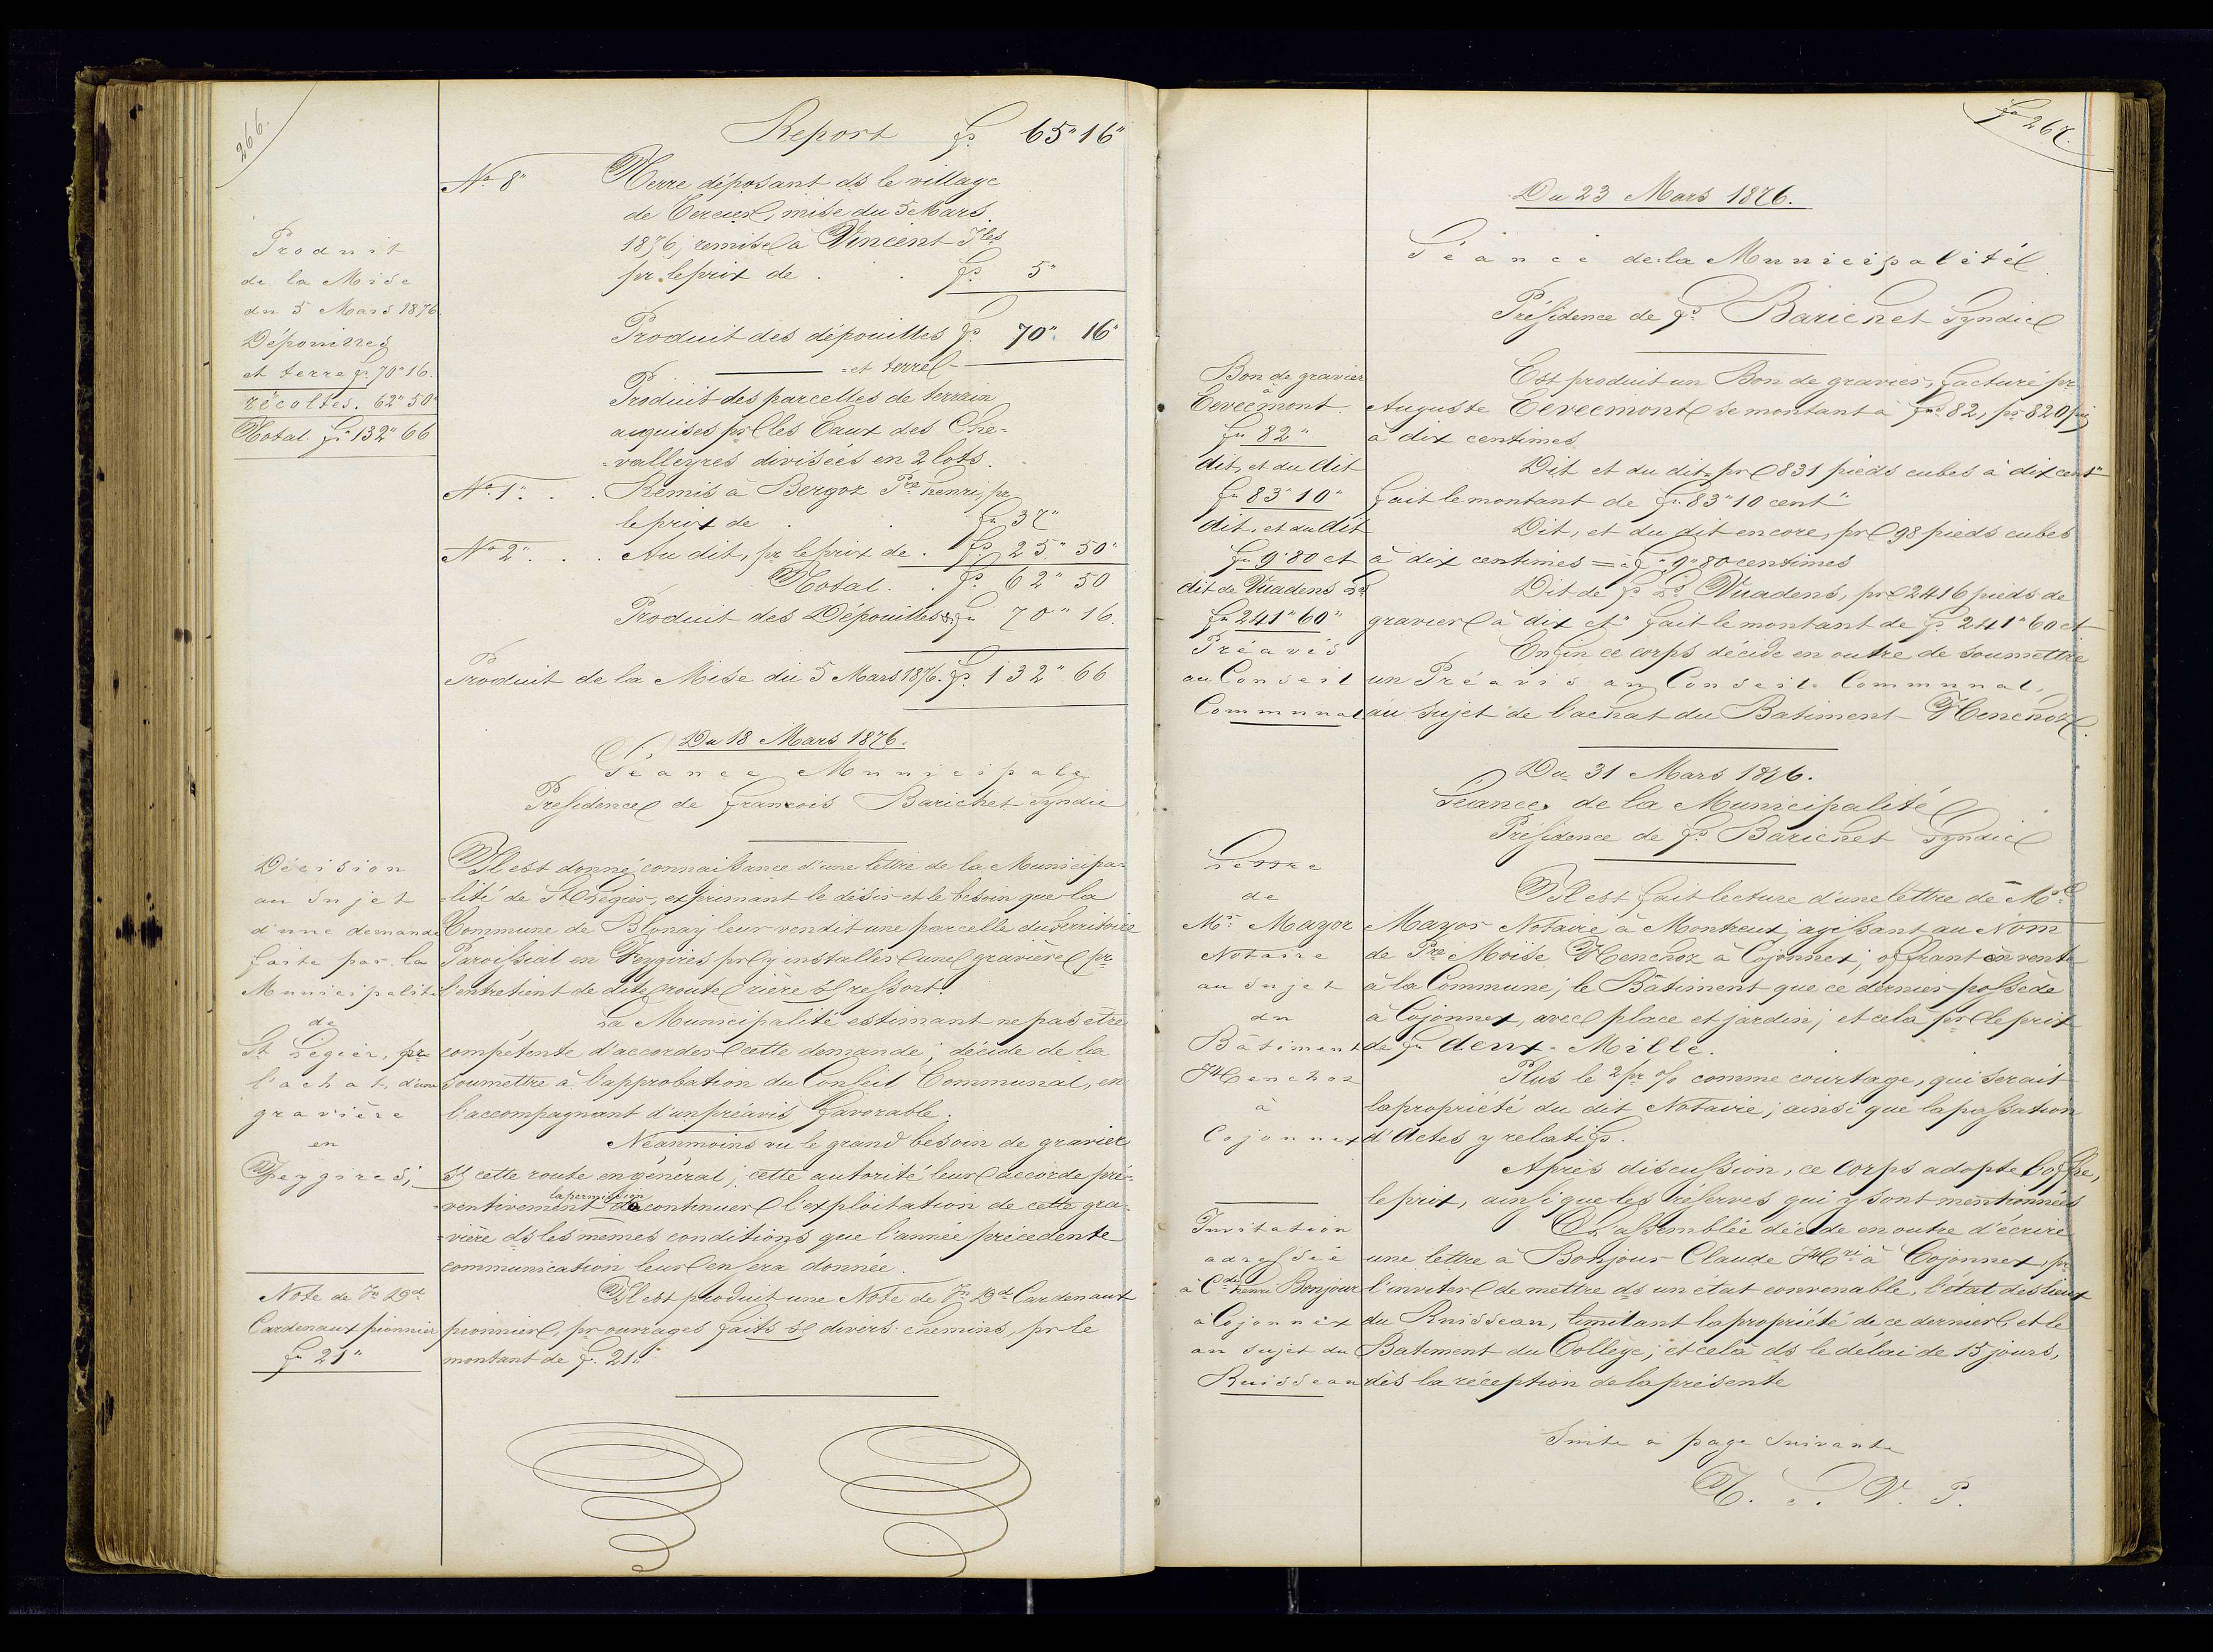 266.
Report fs 65" 16"
No 8" Terre déposant ds le village
de Cercier, mise du 5 Mars
1876, remise à Vincent Jles
pr le prix de . . fs 5"
Produit des dépouilles fs 70" 16"
= et terre -
Produit
de la Mise
du 5 Mars 1876
Dépouilles
et terre fs 70" 16.
récoltes. 62" 50"
Total fs 132" 66
Produit des parcelles de terrain
acquises pr les Eaux des Che=
=valleyres divisées en 2 lots.
No 1". . . Remis à Bergoz Pre henri, pr
le prix de . . fs 37"
No 2". . . Au dit, pr le prix de . fs 25" 50"
Total. . fs 62" 50
Produit des Dépouilles &. fs 70" 16.
Produit de la Mise du 5 Mars 1876. fs 132" 66
Du 18 Mars 1876.
Séance Municipale
Présidence de françois Barichet Syndic
Décision
au sujet
d'une demande
faite par la
Municipalité
de
St Légier, pr
l'achat, d'une
gravière
en
Feygires;
Il est donné connaissance d'une lettre de la Municipa=
=lité de St Légier, exprimant le désir et le besoin que la
Commune de Blonay leur vendit une parcelle du territoire
Paroissial en Feygires pr y installer une gravière pr
l'entretient de dite route rière sr ressort.
La Municipalité estimant ne pas être
compétente d'accorder cette demande; décide de la
soumettre à l'approbation du Conseil Communal, en
l'accompagnant d'un préavis favorable.
Néanmoins vu le grand besoin de gravier
sr cette route en général; cette autorité leur accorde pré=
la permission
=ventivement de continuer l'exploitation de cette gra=
=vière ds les mêmes conditions que l'année précedente
communication leur en sera donnée.
Note de Jn Dd
Cardenaux pionnier
fs 21"
Il est produit une Note de Jn Dd Cardenaux
pionnier, pr ouvrages faits sr divers chemins, pr le
montant de fs. 21"
fo 267.
Du 23 Mars 1876.
Séance de la Municipalité
Présidence de fs Barichet Syndic
Bon de gravier
à
Cevecmont
fs 82"
dit, et du dit
fs 83" 10"
dit, et du dit
fs 9" 80 et
dit de Vuadens Ls
fs 241" 60"
Préavis
au Conseil
Communal
Est produit un Bon de gravier, facturé pr
Auguste Cevecmont se montant à frs 82, pr 820 pds
à dix centimes
Dit et du dit, pr 831 pieds cubes à dix cent"
fait le montant de fs. 83" 10 cent"
Dit, et du dit encore, pr 98 pieds cubes
à dix centimes = à fs. 9" 80 centimes
Dit de fs Ls Vuadens, pr 2416 pieds de
gravier à dix ct" fait le montant de fs 241" 60 ct
Enfin ce corps décide en outre de soumettre
un Préavis au Conseil Communal,
au sujet de l'achat du Batiment Henchoz.
Du 31 Mars 1876.
Séance de la Municipalité
Présidence de fs Barichet Syndic
Lettre
de
Mr Mayor
Notaire
au sujet
du
Bâtiment
Henchoz
à
Cojonnex
Il est fait lecture d'une lettre de Mr
Mayor Notaire à Montreux, agissant au Nom
de Pre Moïse Henchoz à Cojonnex; offrant en vente
à la Commune; le Bâtiment que ce dernier possède
à Cojonnex, avec place et jardin; et cela pr le prix
de fs deux-Mille.
Plus le 2 pr % comme courtage, qui serait
la propriété du dit Notaire; ainsi que la passation
d'Actes y relatifs.
Après discussion, ce Corps adopte l'offre,
le prix, ainsi que les réserves qui y sont mentionnées
Invitation
adressée
à Cde henri Bonjour
à Cojonnex
au sujet du
Ruisseau
L'assemblée décide en outre d'écrire
une lettre à Bonjour Claude Hri à Cojonnex, pr
l'inviter de mettre ds un état convenable, l'état des lieux
du Ruisseau, limitant la propriété de ce dernier, et le
Batiment du Collège; et cela ds le délai de 15 jours,
dès la réception de la présente
Suite à page Suivante
T. S. V. P.